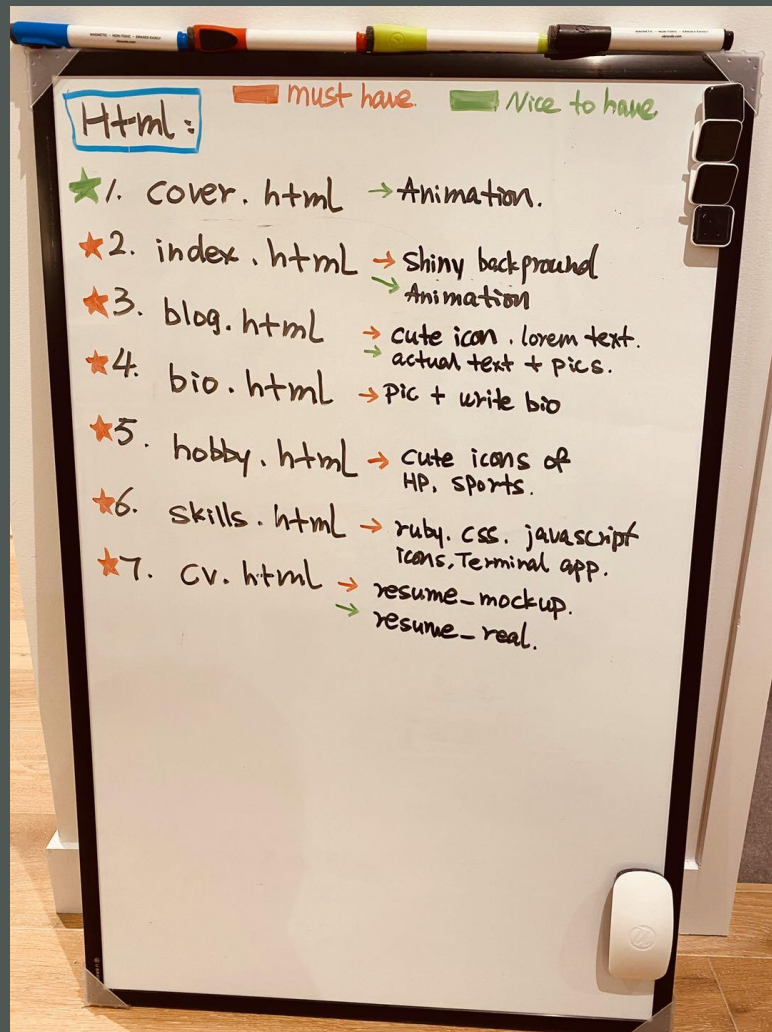 must have.
Nice to have
Html:
1. cover.html → Animation.
2. index.html → shiny background
→ Animation
3. blog.html → cute icon. lorem text.
→ actual text + pics.
4. bio.html → pic + write bio
5. hobby.html → cute icons of
HP, sports.
6. skills.html → ruby. css. javascript
icons, Terminal app.
7. cv.html → resume_mockup.
→ resume_real.